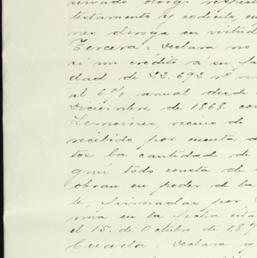 testamento ó codicilo, en
nes deroga en virtud
Tercera: Declara no
si un credito á su fa
dad de 33.693 r
al 6% anual desde
Diciembre de 1868 con
Lemoine, vecino de
recibido por cuenta d
tos la cantidad de
que todo consta de
obran en poder de la
te, firmadas por
ma en la fecha cita
el 15 de Octubre de 18
Cuarta: Declara y